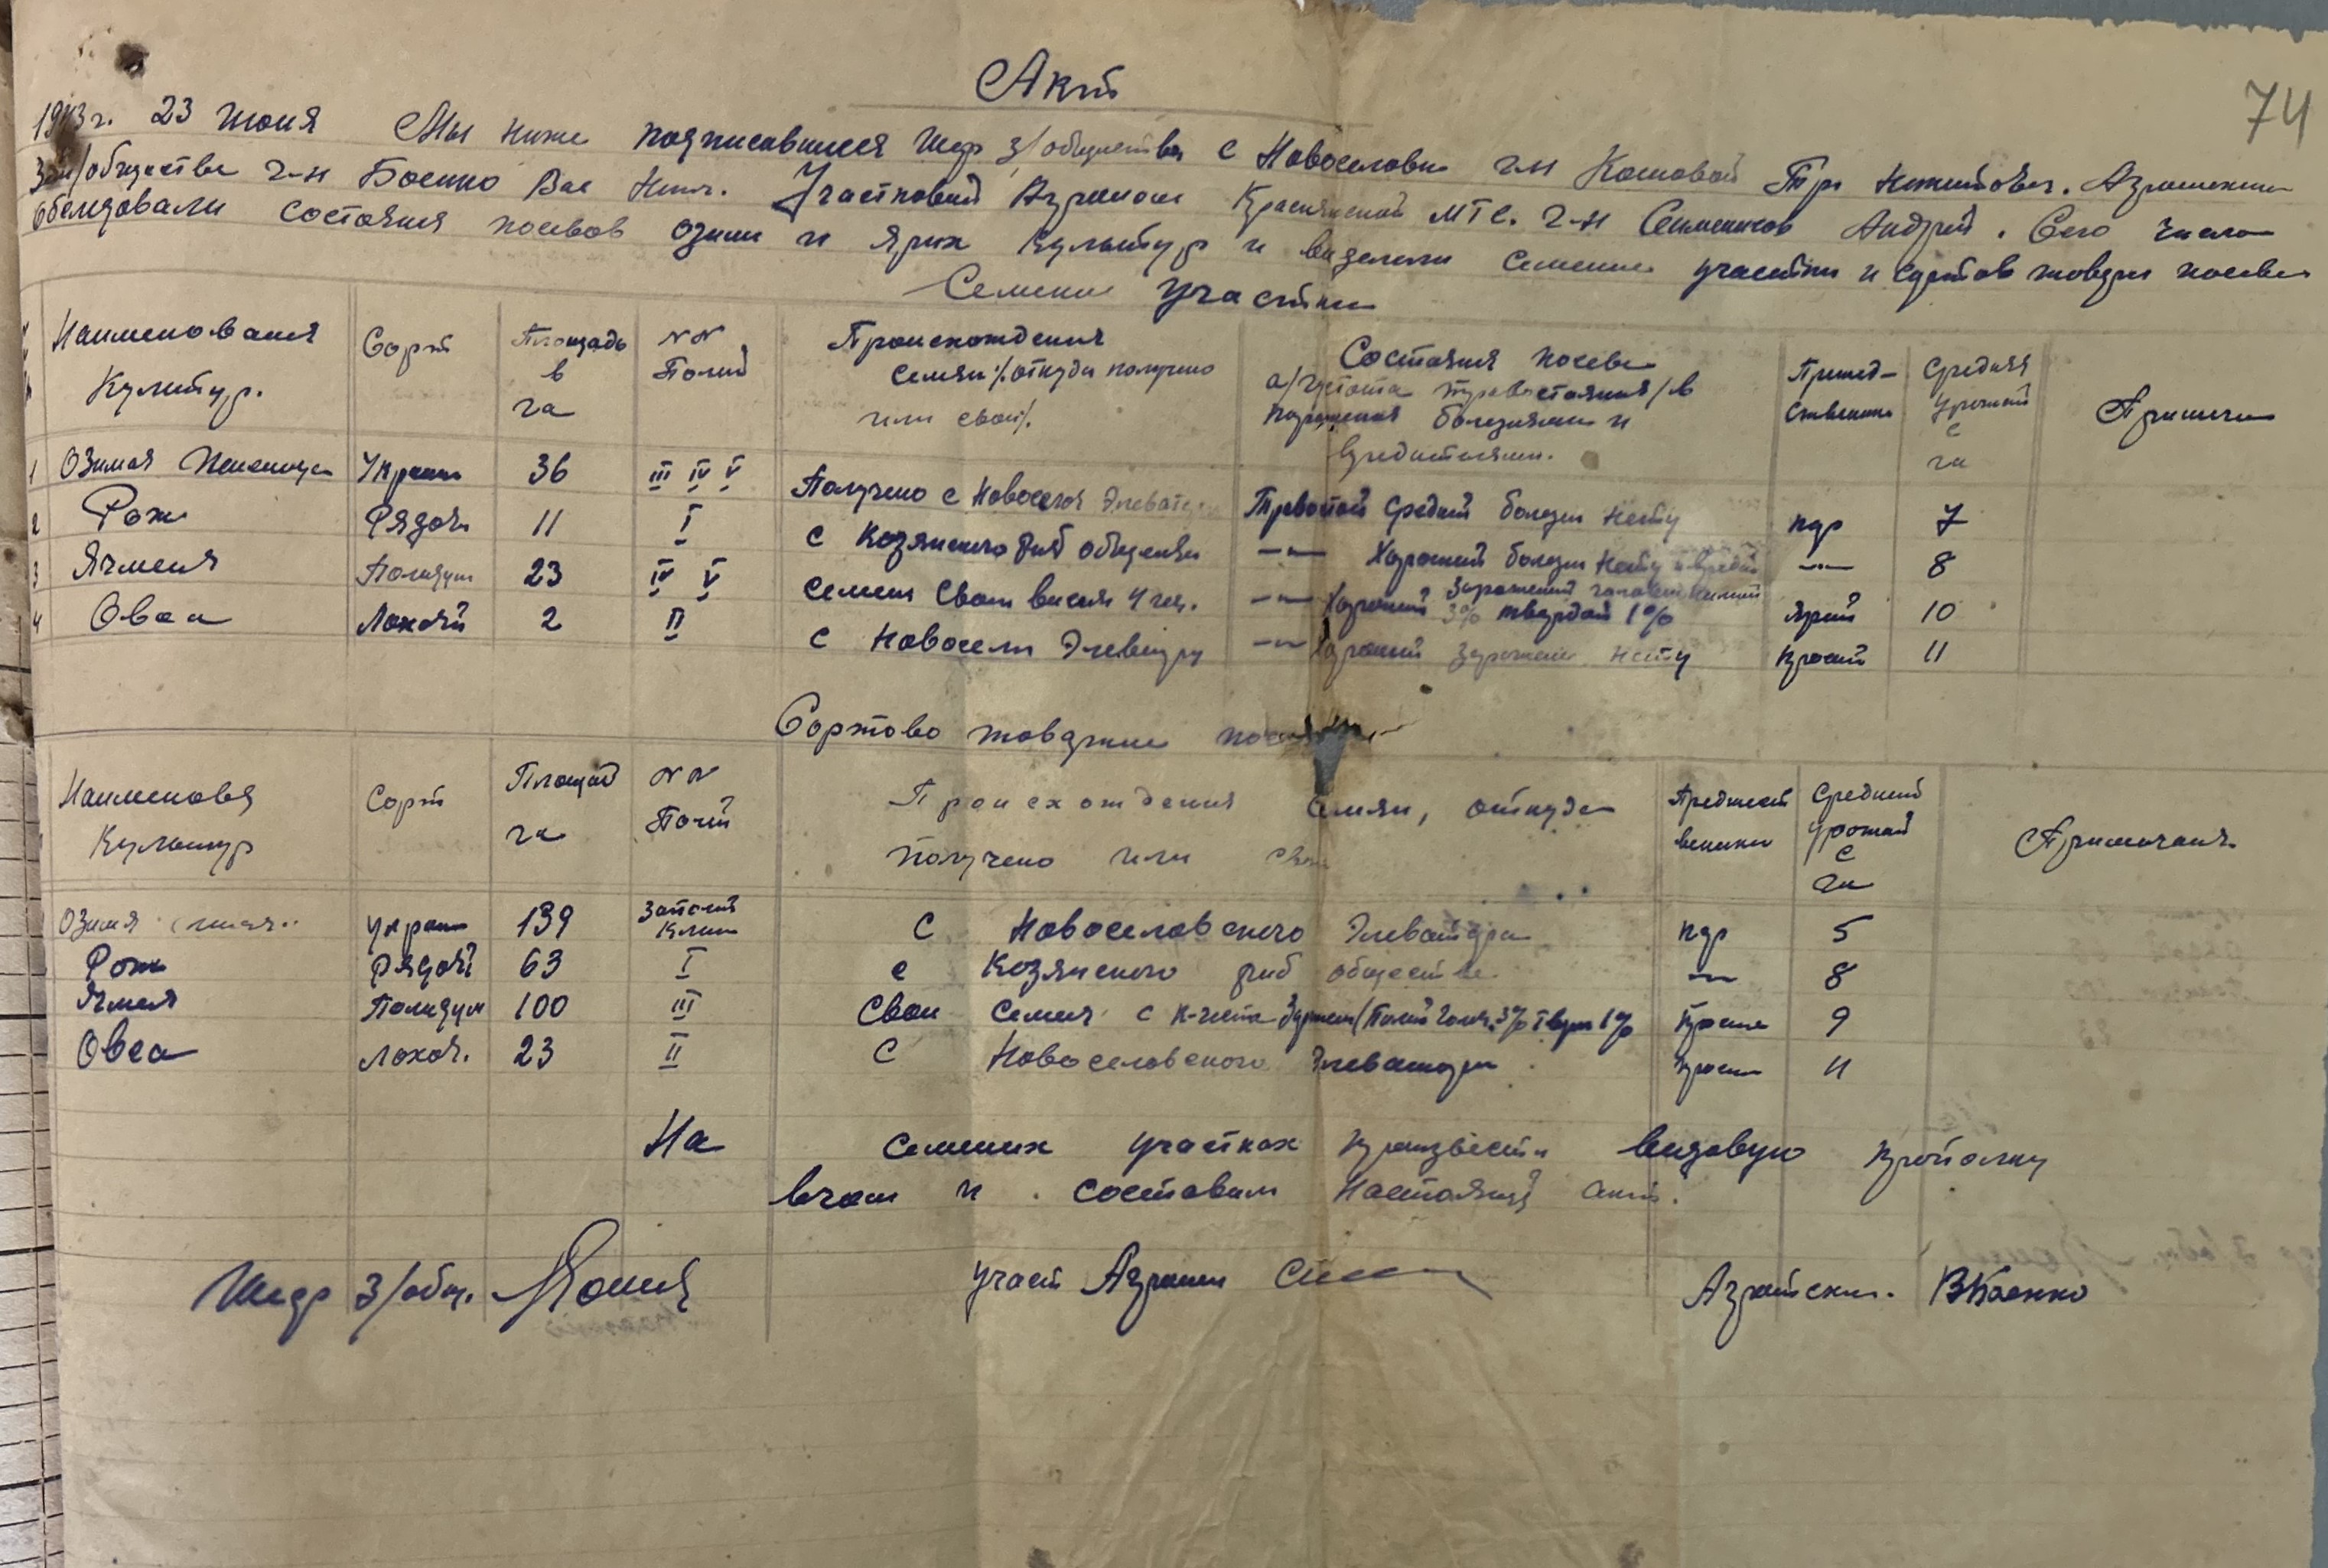 Акт
74
1943 г. 23 июня Мы ниже подписавшиеся Шеф з/общества с Новоселовки г-н Кошовой Тр. Никитович. Агротехник
Зем/общества г-н Боенко Вас Ник. Участковый Агроном Краснянской МТС. г-н Семеников Андрей. Сего числа
обследовали состояния посевов озими и ярих культур и виделели семение участки и сортов товарн посеви
Семение участки
Наименования Культур.
Сорт
Площадь в га
NN Полий
Происхождения семян /откуда получено или свои/.
Состояния посева а/густота травостояния/ в поражения болезнями и вредителями.
Предшественик
Средняя урожай с га
Примечан
1 Озимая Пшеница Украин 36 III IV V Получено с Новоселов Элеватора Травостой Средний болезн нету пар 7
2 Рож Рядов 11 I С Козянского общества —"— Хароший болезн нету —"— 8
3 Ячменя Паледум 23 IV V Семена Свои —"— Хароший 3% твердой 1% Ярий 10
4 Овса Лохов 2 II С Новосели Элеватору —"— Хароший заражени нету 11
Сортово товарние посеви
Наименовая Культур
Сорт
Площад га
NN Полий
Происхождения семян, откуда получено или свои
Предшественики
Средний урожай с га
Примечания
Озимя Украин 139 С Новоселовского Элеватора пар 5
Рож Рядовой 63 I с Козянского общества —"— 8
Ячменя Паледум 100 III Свои Семена 9
Овса Лохов. 23 II С Новоселовского Элеватора 11
На семених участках произвести видовую прополку
вчом и составили настоящий акт.
Шеф З/общ.
Участ Агроном
Агротехн. В Боенко